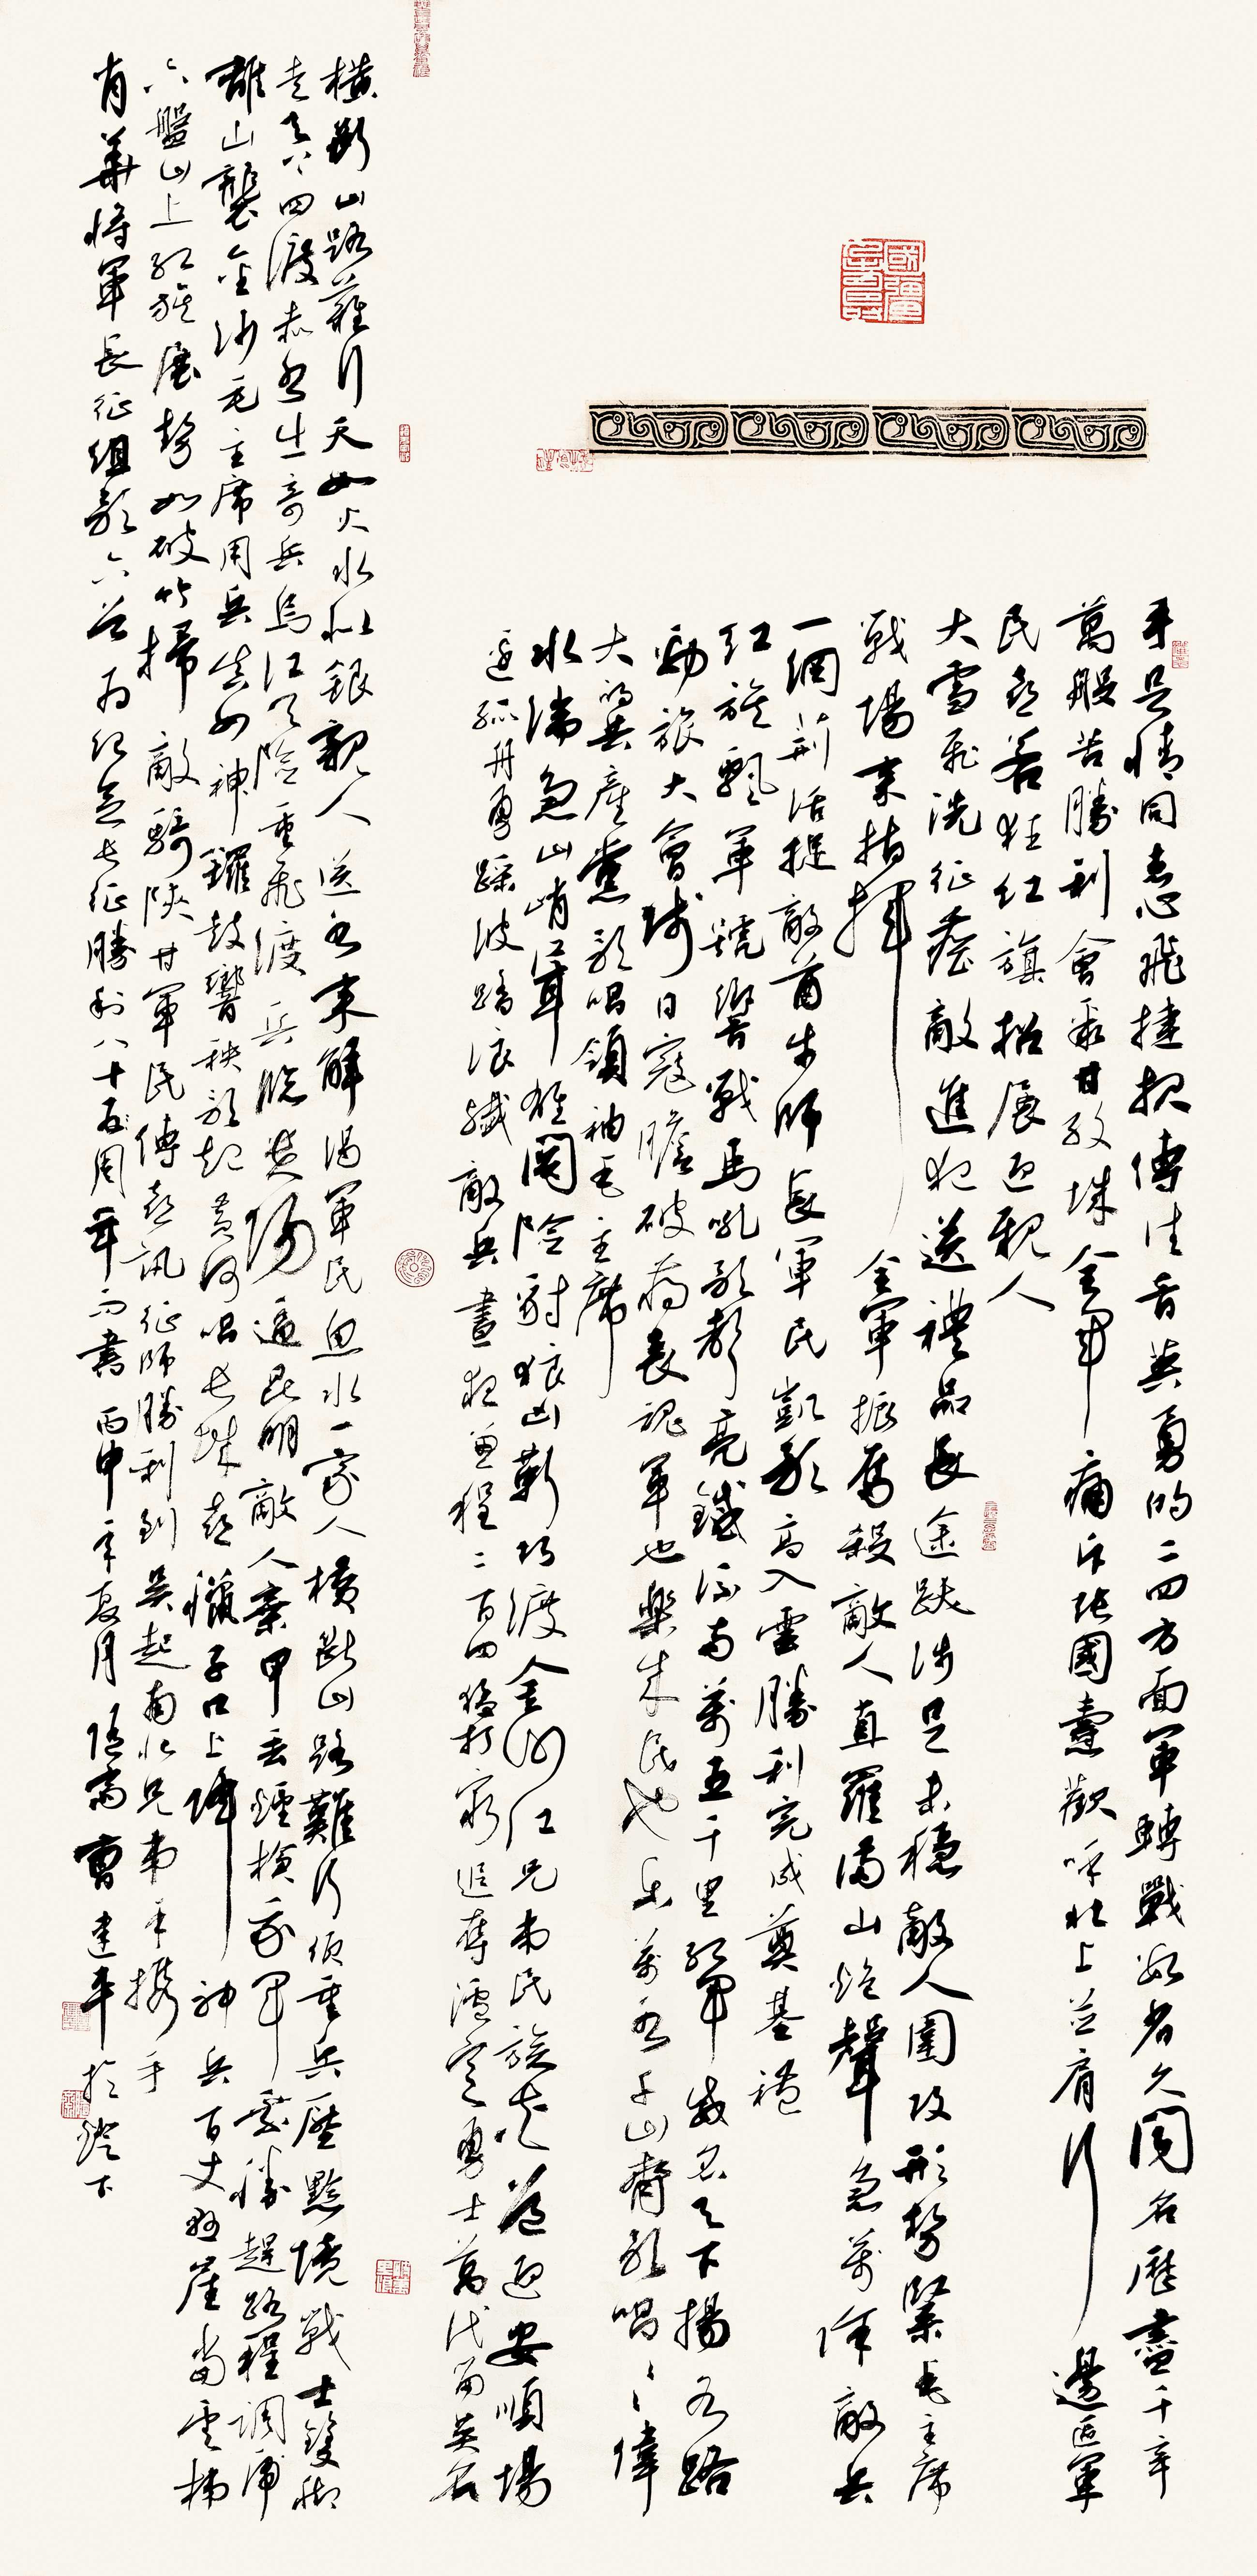 手足情同志心飛捷報傳佳音英勇的二四方面軍轉戰數省久聞名歷盡千辛
萬般苦勝利會聚甘孜城全軍痛斥張國燾歡呼北上並肩行邊區軍
民喜若狂紅旗招展迎親人
大雪飛洗征塵敵進犯送禮品長途跋涉足未穩敵人圍攻形勢緊毛主席
戰場來指揮全軍振奮殺敵人直羅滿山炮聲急萬餘敵兵
一網荊活捉敵酋牛師長軍民凱歌高入雲勝利完成奠基禮
紅旗飄軍號響戰馬吼歌聲亮鐵流兩萬五千里紅軍威名天下揚各路
勁旅大會師日寇膽破蔣喪魂軍也樂來民也樂萬水千山齊歌唱歌唱偉
大的共產黨歌唱領袖毛主席
水湍急山峭聳雄關險豺狼凶巧渡金沙江兄弟民族夾道迎安順場
邊孤舟勇踩波踏浪殲敵兵晝夜兼程二百四猛打窮追奪瀘定勇士萬代留英名
橫斷山路難行天如火水似銀親人送水來解渴軍民魚水一家人橫斷山路難行重兵壓黔境戰士雙腳
走天下四渡赤水出奇兵烏江天險重飛渡兵臨貴陽逼昆明敵人棄甲丟煙槍我軍乘勝趕路程調虎
離山襲金沙毛主席用兵真如神鑼鼓響秧歌起黃河唱長城喜臘子口上降神兵百丈懸崖當雲梯
六盤山上紅旗展勢如破竹掃敵騎陝甘軍民傳喜訊征師勝利到吳起南北兄弟手攜手
肖華將軍長征組歌六首為紀念長征勝利八十周年而書丙申年夏月曹建平於燈下